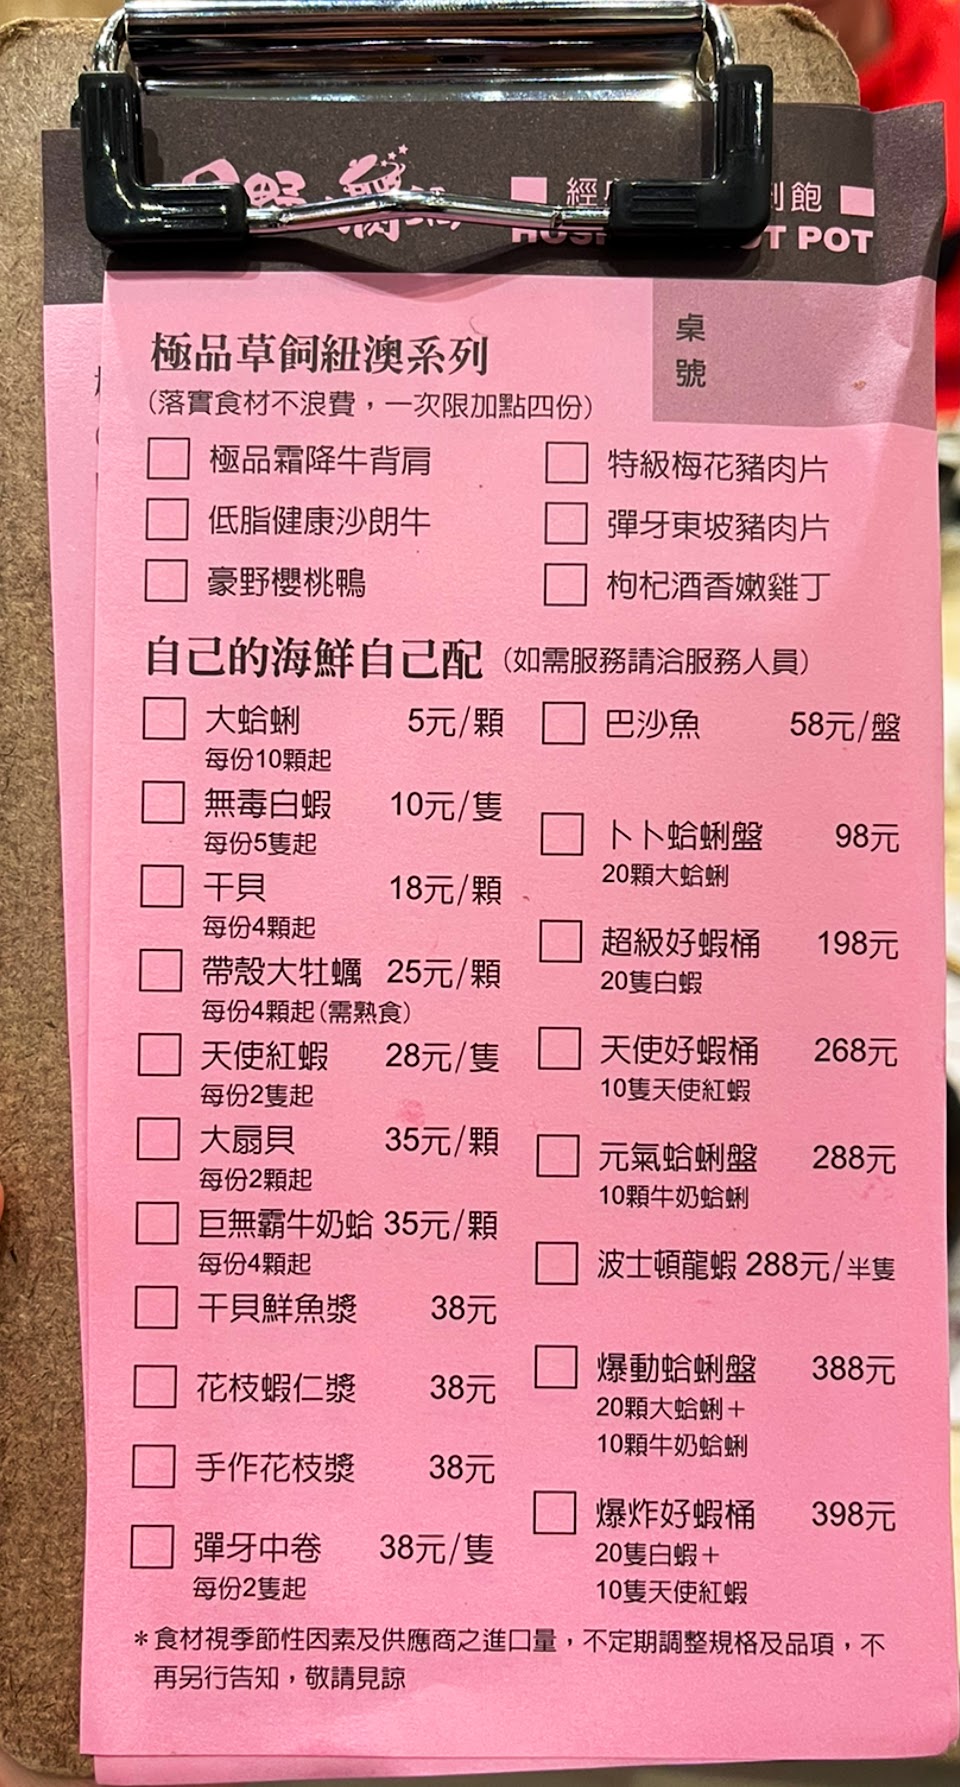 POT
桌
號
極品草飼紐澳系列
(落實食材不浪費，一次限加點四份)
極品霜降牛背肩
低脂健康沙朗牛
豪野櫻桃鴨
特級梅花豬肉片
彈牙東坡豬肉片
枸杞酒香嫩雞丁
自己的海鮮自己配 (如需服務請洽服務人員)
大蛤蜊 5元/顆
每份10顆起
無毒白蝦 10元/隻
每份5隻起
干貝 18元/顆
每份4顆起
帶殼大牡蠣 25元/顆
每份4顆起(需熟食)
天使紅蝦 28元/隻
每份2隻起
大扇貝 35元/顆
每份2顆起
巨無霸牛奶蛤 35元/顆
每份4顆起
干貝鮮魚漿 38元
花枝蝦仁漿 38元
手作花枝漿 38元
彈牙中卷 38元/隻
每份2隻起
巴沙魚 58元/盤
卜卜蛤蜊盤 98元
20顆大蛤蜊
超級好蝦桶 198元
20隻白蝦
天使好蝦桶 268元
10隻天使紅蝦
元氣蛤蜊盤 288元
10顆牛奶蛤蜊
波士頓龍蝦 288元/半隻
爆動蛤蜊盤 388元
20顆大蛤蜊＋
10顆牛奶蛤蜊
爆炸好蝦桶 398元
20隻白蝦＋
10隻天使紅蝦
＊食材視季節性因素及供應商之進口量，不定期調整規格及品項，不
再另行告知，敬請見諒